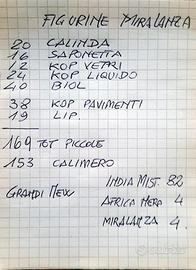 FIGURINE MIRALANZA
20 CALINDA
16 SAPONETTA
12 KOP VETRI
24 KOP LIQUIDO
40 BIOL
38 KOP PAVIMENTI
19 LIP.
169 TOT PICCOLE
153 CALIMERO
GRANDI NEW INDIA MIST. 82
AFRICA NERA 4
MIRALANZA 4.
subito